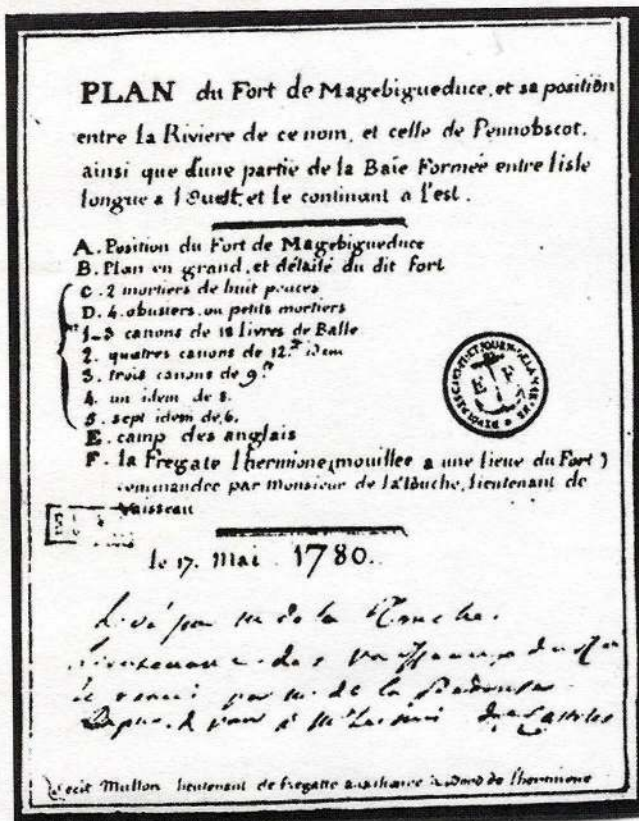 PLAN du Fort de Magebigueduce, et sa position
entre la Riviere de ce nom, et celle de Pennobscot.
ainsi que d'une partie de la Baie Formée entre l'isle
longue a l'Ouest, et le continant a l'est.
A. Position du Fort de Magebigueduce
B. Plan en grand, et détaillé du dit fort
C. 2 mortiers de huit pouces
D. 4. obusiers, ou petits mortiers
1. 3 canons de 18 livres de Balle
2. quatres canons de 12. idem
3. trois canons de 9.
4. un idem de 8.
5. sept idem de 6.
E. camp des anglais
F. la Fregate l'hermione (mouillée a une lieue du Fort)
commandée par monsieur de la touche, lieutenant de
Vaisseau
le 17. Mai 1780.
Levé par M de la Touche.
lieutenant des Vaisseaux du
par M. de la
Mullon lieutenant de fregatte auxiliaire à Bord de l'hermione
E F